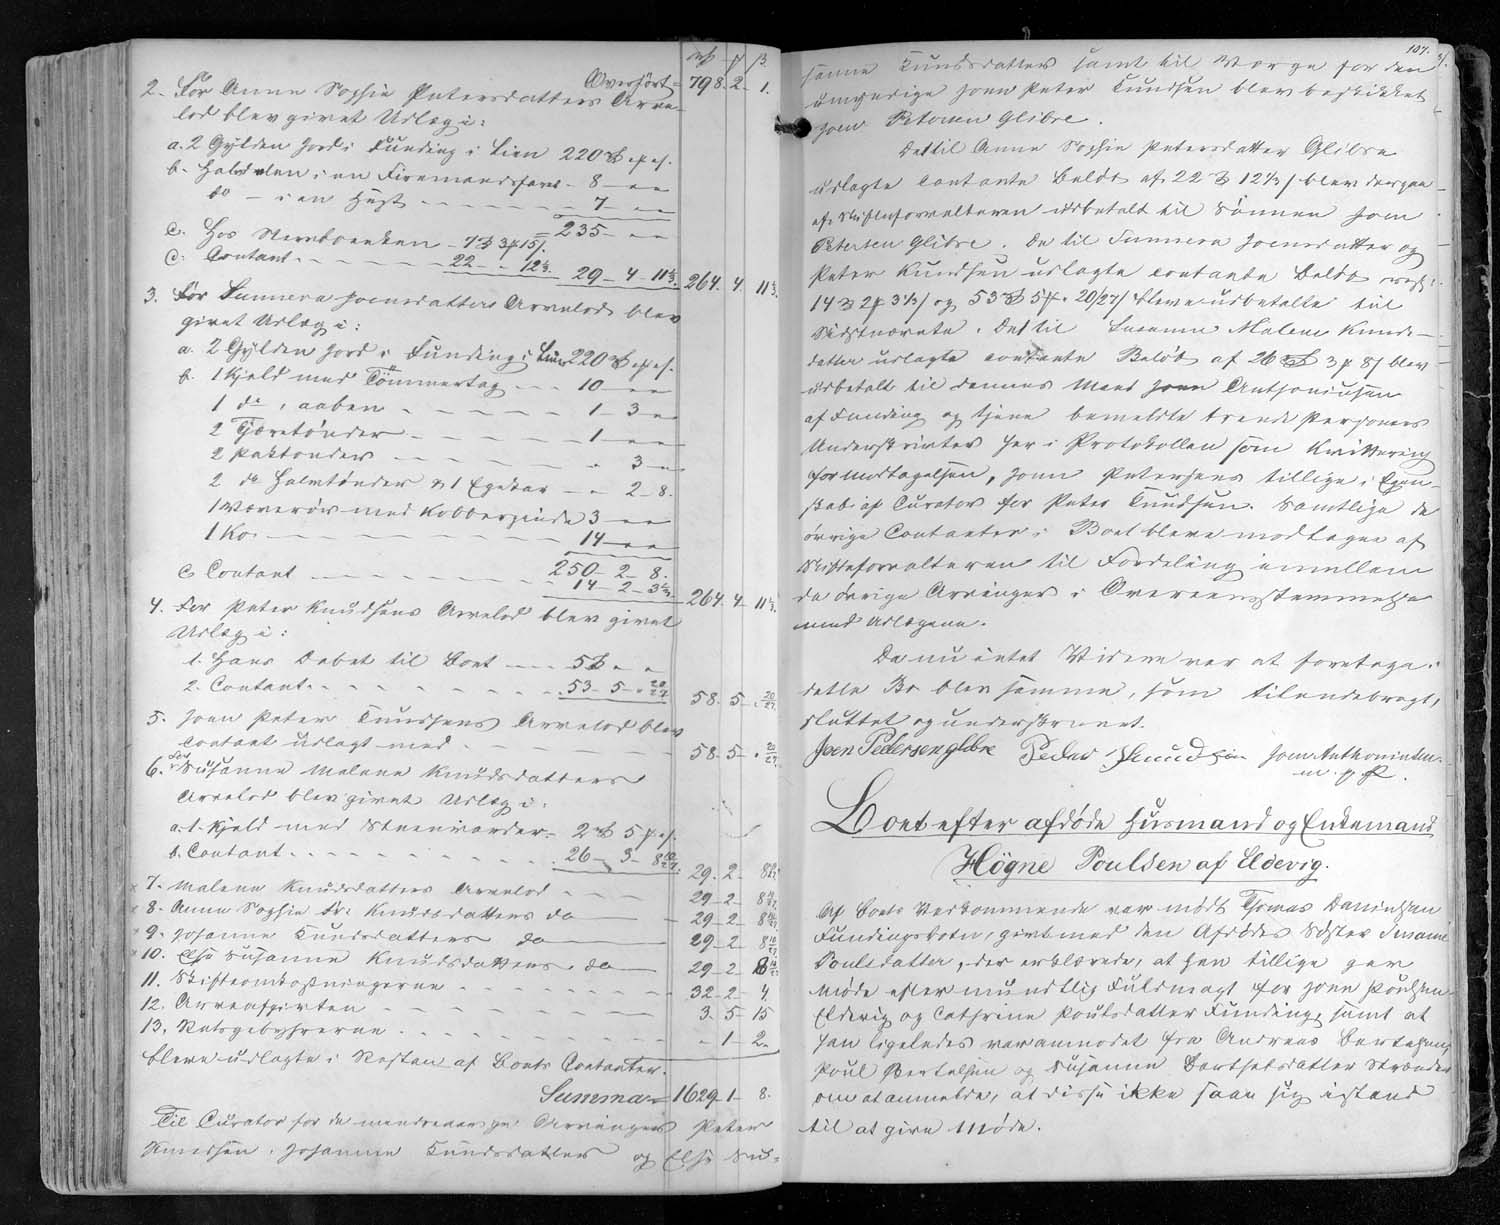 rd β β
Overført = 798. 2. 1.
2. For Anna Sophie Petersdatters Arve-
lod blev givet Udlæg i:
a. 2 Gylden Jord i Funding i Lien 220 rd
b. Halvdelen i en Firemandsfar - 8 - " "
do - i en Hest - 7 - " "
= 235 - " "
c. Hos Stervboenken - 7 rd 3 β 15 /.
c. Contant - 22 - " 12⅓. 29 - 4 - 11⅓. 264. 4. 11⅓.
3. For Sunneva Joensdatters Arvelod blev
givet Udlæg i:
a. 2 Gylden Jord i Funding i Lien 220 rd
b. 1 Kjeld med Tømmertag - 10 - " "
1 do, aaben - 1 - 3 - "
2 Tjæretønder - 1 - " "
2 - " 3 - "
2 do Halvtønder & 1 - " 2 - 8.
1 med Kobberpinde 3 - " "
1 Ko - 14 - " "
250 - 2 - 8.
c. Contant - 14 - 2 - 3⅓. 264. 4. 11⅓.
4. For Peter Knudsens Arvelod blev givet
Udlæg i:
1. Hans Debet til Boet - 5 rd " "
2. Contant - 53 - 5 - " 20/27 58. 5. " 20/27
5. Joen Peter Knudsens Arvelod blev
contant udlagt med - 58 - 5 - " 20/27
6. For Susanne Malene Knudsdatters
Arvelod blev givet Udlæg i:
a. 1 Kjeld med - 2 rd 5 β
b. Contant - 26 - 3 - 8 10/27. 29. 2. 8 10/27
7. Malene Knudsdatters Arvelod - 29 - 2 - 8 10/27
8. Anna Sophie Fr: Knudsdatters do - 29 - 2 - 8 10/27
9. Johanne Knudsdatters do - 29 - 2 - 8 10/27
10. Else Susanne Knudsdatters do - 29 - 2 - 8 10/27
11. Skifteomkostningerne - 32 - 2 - 4.
12. Arveafgiften - 3. - 5 - 15
13. Retsgebyhrerne - " - 1 - 2.
bleve udlagte i Resten af Boets Contanter.
Summa = 1629 - 1 - 8.
Til Curator for de mindreaarige Arvinger Peter
Knudsen, Johanne Knudsdatter og Else Su=
107.
sanne Knudsdatter samt til Værge for den
umyndige Joen Peter Knudsen blev beskikket
Joen Petersen Glibre.
Det til Anna Sophie Petersdatter Glibre
udlagte contante Beløb af 22 rd 12⅓ / blev derpaa
af Skifteforvalteren udbetalt til Sønnen Joen
Petersen Glibre. De til Sunneva Joensdatter og
Peter Knudsen udlagte contante Beløb resp:
14 rd 2 β 3⅓ / og 53 rd 5 β " 20/27 / bleve udbetalte til
Sidstnævnte. Det til Susanne Malene Knuds-
datter udlagte contante Beløb af 26 rd 3 β 8 / blev
udbetalt til dennes Mand Joen Anthoniusen
af Funding og tjene bemeldte trende Personers
Underskrifter her i Protokollen som Kvittering
for Modtagelsen, Joen Petersens tillige i Egen-
skab af Curator for Peter Knudsen. Samtlige de
øvrige Contanter i Boet bleve modtagne af
Skifteforvalteren til Fordeling imellem
de øvrige Arvinger i Overeensstemmelse
med Udlægene.
Da nu intet Videre var at foretage i
dette Bo blev samme, som tilendebragt,
sluttet og underskrevet.
Joen Pedersen glibre Peder Knudsen Joen Anthoniusen
m. f. P.
Boet efter afdøde Husmand og Enkemand
Høgne Poulsen af Eldevig.
Af Boets Vedkommende var mødt Thomas Danielsen
Fundingsbotn, givt med den Afdødes Søster Susanne
Poulsdatter, der erklærede, at han tillige gav
Møde efter mundtlig Fuldmagt for Joen Poulsen
Eldevig og Cathrine Poulsdatter Funding, samt at
han ligeledes var anmodet fra Andreas Bertelsen,
Poul Bertelsen og Susanne Bertelsdatter Strænder
om at anmelde, at disse ikke saae sig istand
til at give Møde.